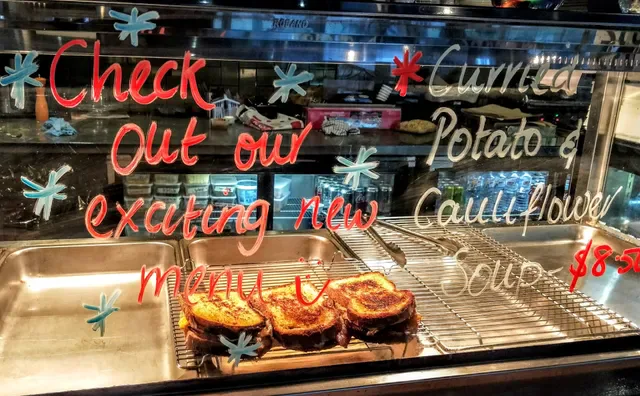 Check
Out our
exciting new
menu
Curried
Potato &
Cauliflower
Soup- $8.50